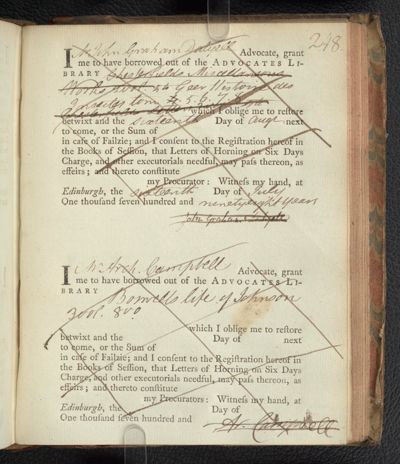 248
I Mr John Graham Dalyell Advocate, grant
me to have borrowed out of the ADVOCATES LI-
BRARY Chesterfields Miscellaneous
Works
which I oblige me to reſtore
betwixt and the sixteenth Day of Augt next
to come, or the Sum of
in caſe of Failzie; and I conſent to the Regiſtration hereof in
the Books of Seſſion, that Letters of Horning on Six Days
Charge, and other executorials needful, may paſs thereon, as
effeirs; and thereto conſtitute
my Procurator: Witneſs my hand, at
Edinburgh, the sixteenth Day of July
One thouſand ſeven hundred and ninetyeight years
John Graham Dalyell
I Mr Arch. Campbell Advocate, grant
me to have borrowed out of the ADVOCATES LI-
BRARY Boswells life of Johnson
3 vol. 8vo
which I oblige me to reſtore
betwixt and the Day of next
to come, or the Sum of
in caſe of Failzie; and I conſent to the Regiſtration hereof in
the Books of Seſſion, that Letters of Horning on Six Days
Charge, and other executorials needful, may paſs thereon, as
effeirs; and thereto conſtitute
my Procurators: Witneſs my hand, at
Edinburgh, the Day of
One thouſand ſeven hundred and
A. Campbell